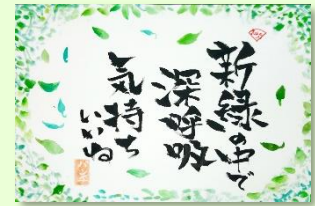 新緑の中で
深呼吸
気持ち
いいね